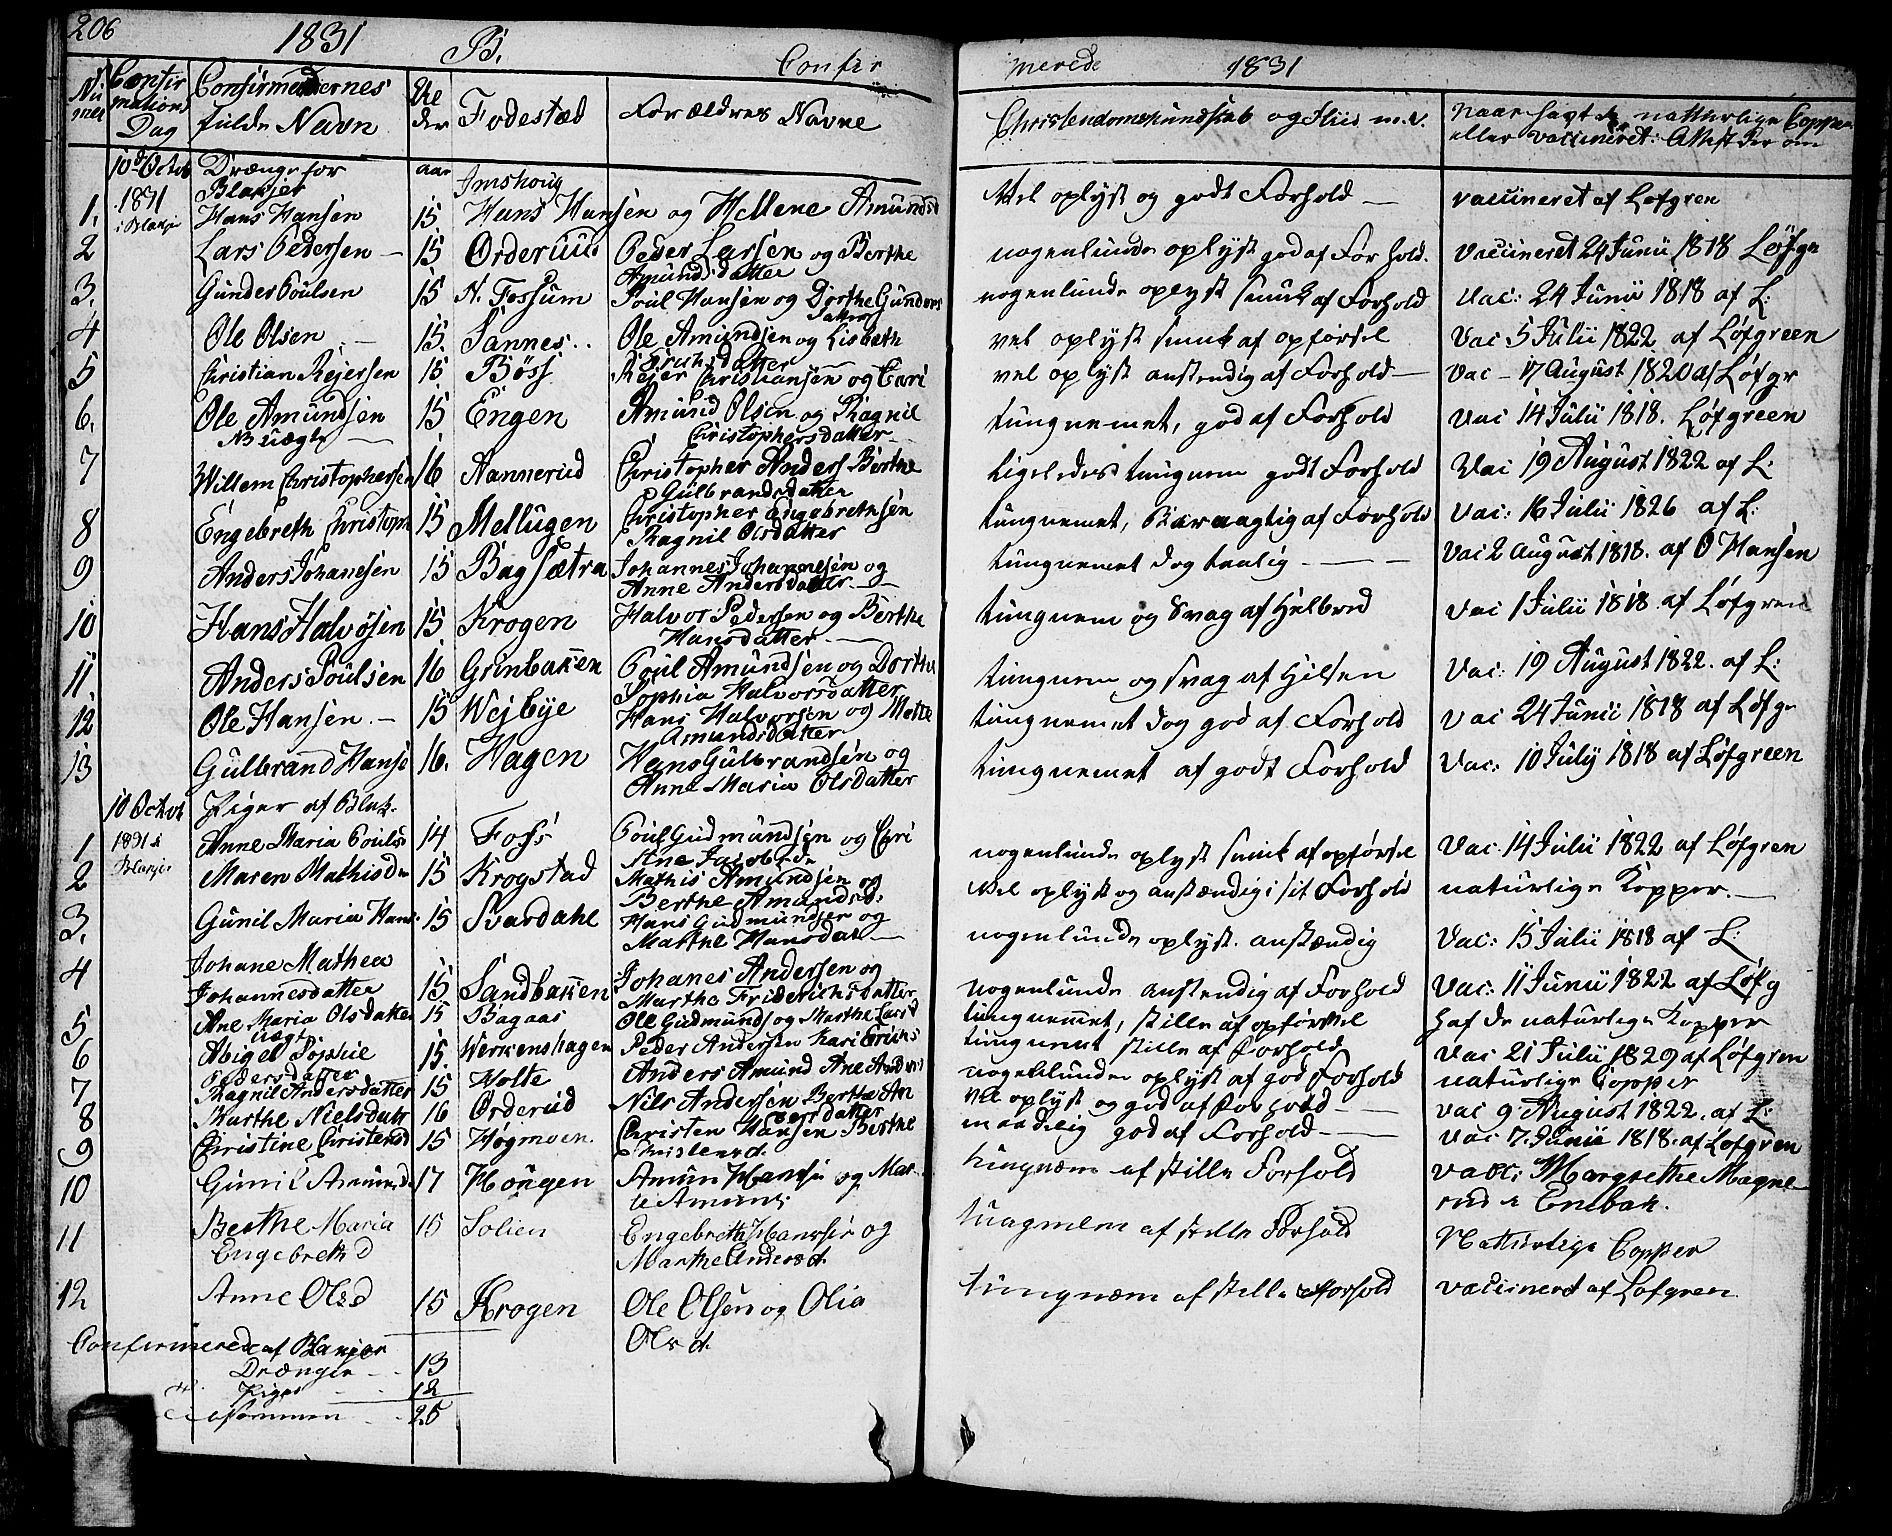 206 1831 B. Confir merede 1831
Nu mer Confir mations Dag Confirmandernes fulde Navn Alder Fødestæd Forældres Navne Christendomskundskab og Fliid m.v. Naar havt de naturlige Copper eller vaccineret: Attest derom
10de Octob 1831 i Blakjer Drænge for Blakjer aar
1. Hans Hansen 15 Imshoug Hans Hansen og Hellene Amundsd Vel oplyst og godt Forhold — vaccineret af Løfgren
2 Lars Pedersen — 15 Orderuud Peder Larsen og Berthe Amundsdatter nogenlunde oplyst god af Forhold. Vaccineret 24 Junii 1818 Løfgr
3. Gunder Poulsen 15 N. Fossum Poul Hansen og Dorthe Gunders datter nogenlunde oplyst smuk af Forhold Vac: 24 Junii 1818 af L:
4 Ole Olsen — 15. Sannes.. Ole Amundsen og Lisbeth Erichsdatter vel oplyst smuk af opførsel Vac 5 Julii 1822 af Løfgreen
5 Christian Rejersen 15 Bøsj Rejer Christiansen og Cari vel oplyst anstendig af Forhold — Vac — 17 August 1820 af Løfgr
6. Ole Amundsen NB uægte — 15 Engen Amund Olsen og Ragnil Christophersdatter — tungnemet, god af Forhold Vac 14 Julii 1818. Løfgreen
7 Willem Christophersen 16 Nannerud Christopher Anders Berthe Gulbrandsdatter ligeledes tungnem godt Forhold Vac 19 August 1822 af L:
8 Engebreth Christoph 15 Mellugen Christopher Engebrethsen Ragnil Olsdatter tungnemet, af Forhold Vac: 16 Julii 1826 af L:
9 Anders Johanesen 15 Bagsætra Johannes Johannesen og Anne Andersdatter — tungnemet dog taalig — — Vac 2 August 1818. af O Hansen
10 Hans Halvosen 15 Krogen Halvor Pedersen og Berthe Hansdatter — tungnem og Svag af Helbred Vac 1 Julii 1818 af Løfgren
11 Anders Poulsen 16 Grinbakken Poul Amundsen og Dorthe Sophia Halvorsdatter tungnem og svag af Hilsen Vac: 19 August 1822. af L:
12 Ole Hansen — 15 Wejbye Hans Halvorsen og Mette Amundsdatter tungnemet dog god af Forhold Vac 24 Junii 1818 af Løfgr
13 Gulbrand Hanse 16. Hagen Hans Gulbrandsen og Anne Maria Olsdatter tungnemet af godt Forhold Vac: 10 July 1818 af Løfgreen
10 Octob 1831 i Blakjer Piger af Blak.
1 Anne Maria Pouls 14 Foss Poul Gudmundsen og Ane Jacobsde nogenlunde oplyst smuk af opførsel Vac: 14 Julii 1822 af Løfgren
2 Maren Mathisd 15 Krogstad Mathis Amundsen og Berthe Amundsd: Vel oplyst og anstændig i sit Forhold naturlige Kopper. —
3. Gunil Maria Hans 15 Svardahl Hans Gudmundsen og Marthe Hansdat — nogenlunde oplyst. anstændig Vac: 15 Julii 1818 af L:
4 Johane Mathea Johannesdatter 15 Sandbakken Johanes Andersen og Marthe Friderichsdatter nogenlunde anstendig af Forhold Vac: 11 Junii 1822 af Løfg
5 Ane Maria Olsdatter uægte 15 Bagaas Ole Gudmunds og Marthe Larsd tungnemet, stille af opførsel haf de naturlige Kopper
6 Abigel Sophie Pedersdatter 15. Werkenshagen Peder Andersen Kari Erichs tungnemt stille af Forhold Vac 21 Julii 1829 af Løfgren
7 Ragnil Andersdatter 15 Holte Anders Amund Ane Anders nogenlunde oplyst af god Forhold naturlige Copper
8 Marthe Nielsdatr 16 Orderud Nils Andersen Berthe An dersdatter Vel oplyst og god af Forhold — vac 9 August 1822. af L:
9 Christine Christensd 15 Høgmoen Christen Hansen Berthe Christensd. maadelig god af Forhold — Vac 7. Junii 1818. af Løfgren
10 Gunil Amunsd 17 Hougen Amun Hansen og Mar te Amuns: tungnæm af stille Forhold Vacc: Margrethe Magnerud i Enebak.
11 Berthe Maria Engebrethd 15 Solien Engebreth Hansen og Marthe Andersd. tungnem af stille Forhold Naturlige Copper
12 Anne Olsd 15 Krogen Ole Olsen og Olia Olsd. tungnæm af stille Forhold vaccinerd af Løfgren.
Confirmerede af Blakjer
Drænge — 13
Piger — 12
Summen — 25